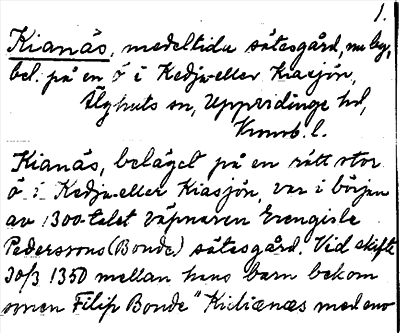 1.
Kianäs, medeltida sätesgård, nu lag,
bel. på en ö i Kedju-eller Kiasjön,
Älghults sn, Uppvidinge hd,
Kronob. l.
Kianäs, beläget på en rätt stor
ö i Kedju-eller Kiasjön, var i början
av 1300-talet väpnaren Erengisle
Pederssons (Bonde) sätesgård. Vid skifte
30/3 1350 mellan hans barn bekom
sonen Filip Bonde "Kidiænæs med eno